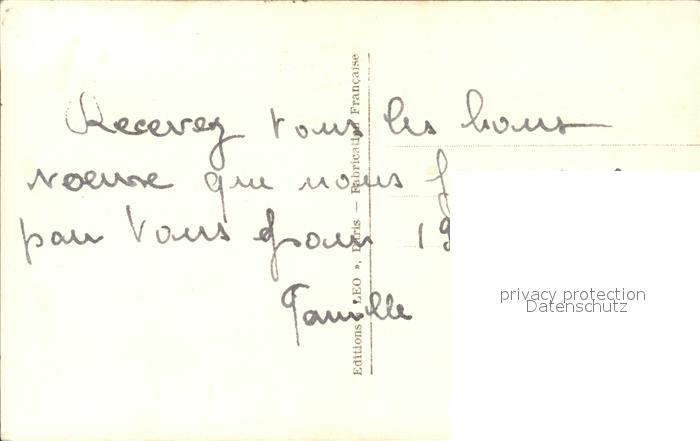 Recevez tous les bons
voeux que nous f
par Vous pour 19
Famille
Editions « LEO », Paris — Fabrication Française
privacy protection
Datenschutz